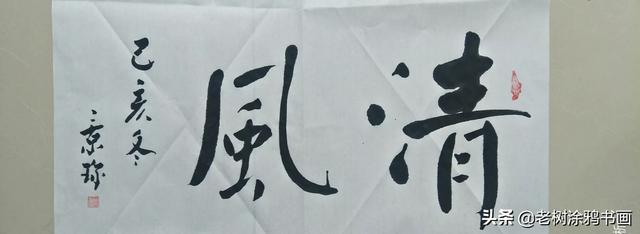 清風
己亥冬
京珍
头条 @老树涂鸦书画